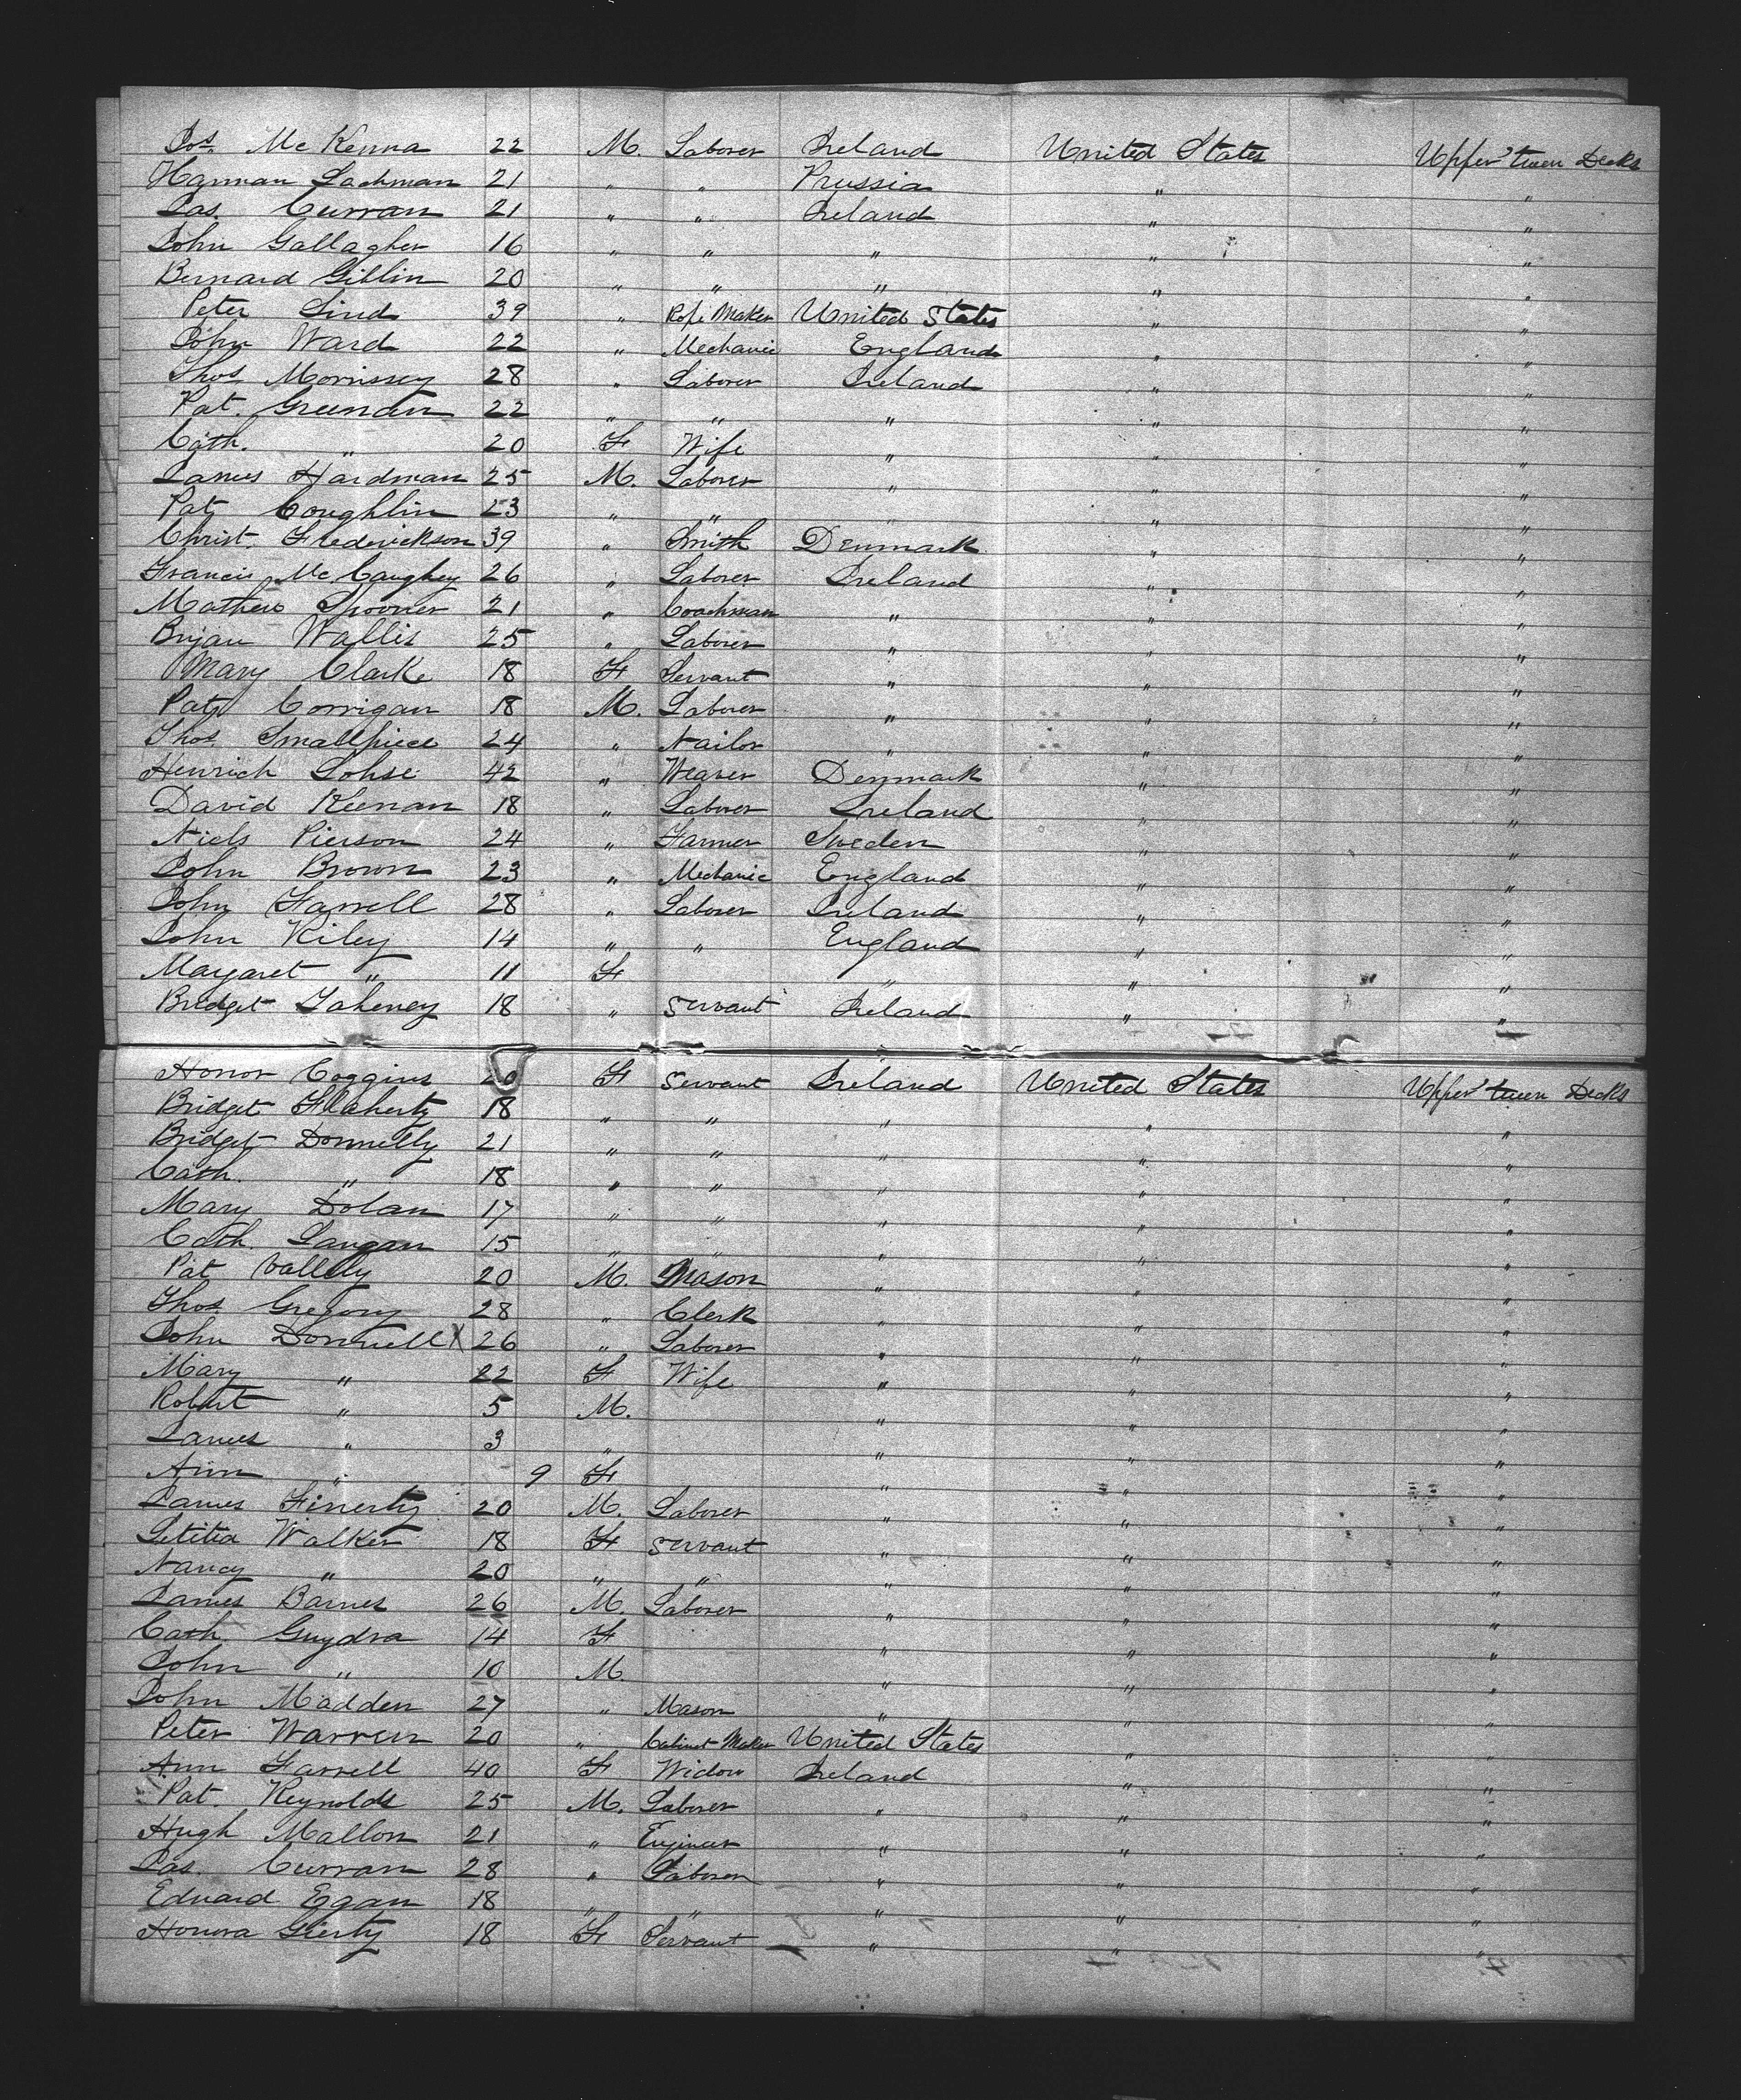 Jos. McKenna 22 M. Laborer Ireland United States Upper 'tween Decks
Harman Lachman 21 " " Prussia " "
Jas. Curran 21 " " Ireland " "
John Gallagher 16 " " " " "
Bernard Giblin 20 " " " " "
Peter Lind 39 " Rope Maker United States " "
John Ward 22 " Mechanic England " "
Thos. Morrissey 28 " Laborer Ireland " "
Pat. Greenan 22 " " " " "
Cath. " 20 F Wife " " "
James Hardman 25 M. Laborer " " "
Pat Coughlin 23 " " " " "
Christ. Frederickson 39 " Smith Denmark " "
Francis McCaughey 26 " Laborer Ireland " "
Mathew Spooner 21 " Coachman " " "
Bryan Wallis 25 " Laborer " " "
Mary Clark 18 F Servant " " "
Pat Corrigan 18 M. Laborer " " "
Thos. Smallpiece 24 " Nailor " " "
Henrich Lohse 42 " Weaver Denmark " "
David Keenan 18 " Laborer Ireland " "
Niels Pierson 24 " Farmer Sweden " "
John Brown 23 " Mechanic England " "
John Farrell 28 " Laborer Ireland " "
John Riley 14 " " England " "
Margaret " 11 F " " "
Bridget Faheney 18 " Servant Ireland " "
Honor Coggins 20 F Servant Ireland United States Upper 'tween Decks
Bridget Flaherty 18 " " " " "
Bridget Donnelly 21 " " " " "
Cath. " 18 " " " " "
Mary Dolan 17 " " " " "
Cath. Langan 15 " " " " "
Pat Vallily 20 M. Mason " " "
Thos. Gregory 28 " Clerk " " "
John Donnell X 26 " Laborer " " "
Mary " 22 F Wife " " "
Robert " 5 M. " " "
James " 3 " " " "
Ann " 9 F " " "
James Finerty 20 M. Laborer " " "
Letitia Walker 18 F Servant " " "
Nancy " 20 " " " " "
James Barnes 26 M. Laborer " " "
Cath. Guydra 14 F " " "
John " 10 M. " " "
John Madden 27 " Mason " " "
Peter Warren 20 " Cabinet Maker United States " "
Ann Farrell 40 F Widow Ireland " "
Pat. Reynolds 25 M. Laborer " " "
Hugh Mallon 21 " Engineer " " "
Jas. Curran 28 " Laborer " " "
Edward Egan 18 " " " " "
Honora Gierty 18 F Servant " " "